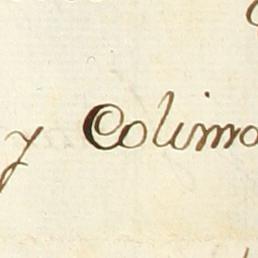 y Colima